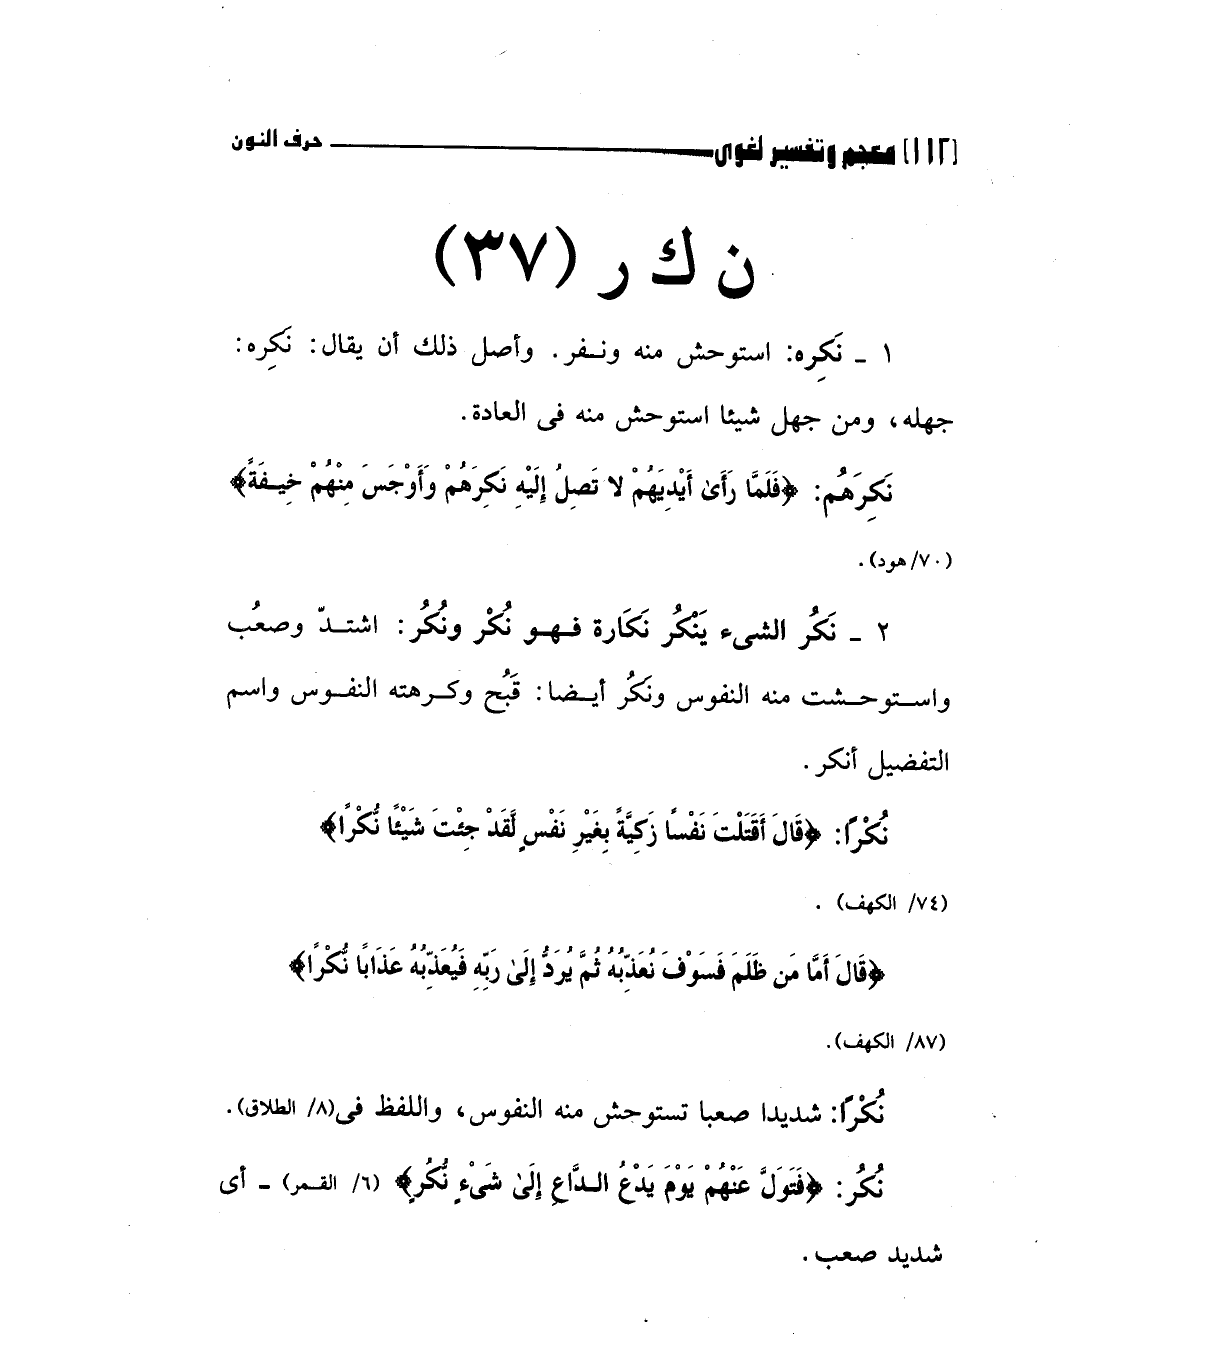 [١١٢] معجم وتفسير لغوى حرف النون
ن ك ر (٣٧)
١ ـ نَكِره: استوحش منه ونـفر. وأصل ذلك أن يقال: نَكِره:
جهله، ومن جهل شيئا استوحش منه فى العادة.
نَكِرَهُم: ﴿فَلَمَّا رَأَىٰ أَيْدِيَهُمْ لا تَصِلُ إِلَيْهِ نَكِرَهُمْ وَأَوْجَسَ مِنْهُمْ خِيـفَةً﴾
(٧٠/هود).
٢ ـ نَكُر الشىء يَنْكُر نَكَارة فـهـو نُكْر ونُكُر: اشتـدّ وصعُب
واسـتوحـشت منه النفوس ونَكُر أيـضا: قَبُح وكـرهته النفـوس واسم
التفضيل أنكر.
نُكْرًا: ﴿قَالَ أَقَتَلْتَ نَفْسًا زَكِيَّةً بِغَيْرِ نَفْسٍ لَّقَدْ جِئْتَ شَيْئًا نُّكْرًا﴾
(٧٤/ الكهف) .
﴿قَالَ أَمَّا مَن ظَلَمَ فَسَوْفَ نُعَذِّبُهُ ثُمَّ يُرَدُّ إِلَىٰ رَبِّهِ فَيُعَذِّبُهُ عَذَابًا نُّكْرًا﴾
(٨٧/ الكهف).
نُكْرًا: شديدا صعبا تستوحش منه النفوس، واللفظ فى(٨/ الطلاق).
نُكُر: ﴿فَتَوَلَّ عَنْهُمْ يَوْمَ يَدْعُ الـدَّاعِ إِلَىٰ شَىْءٍ نُّكُرٍ﴾ (٦/ القـمر) ـ أى
شديد صعب.